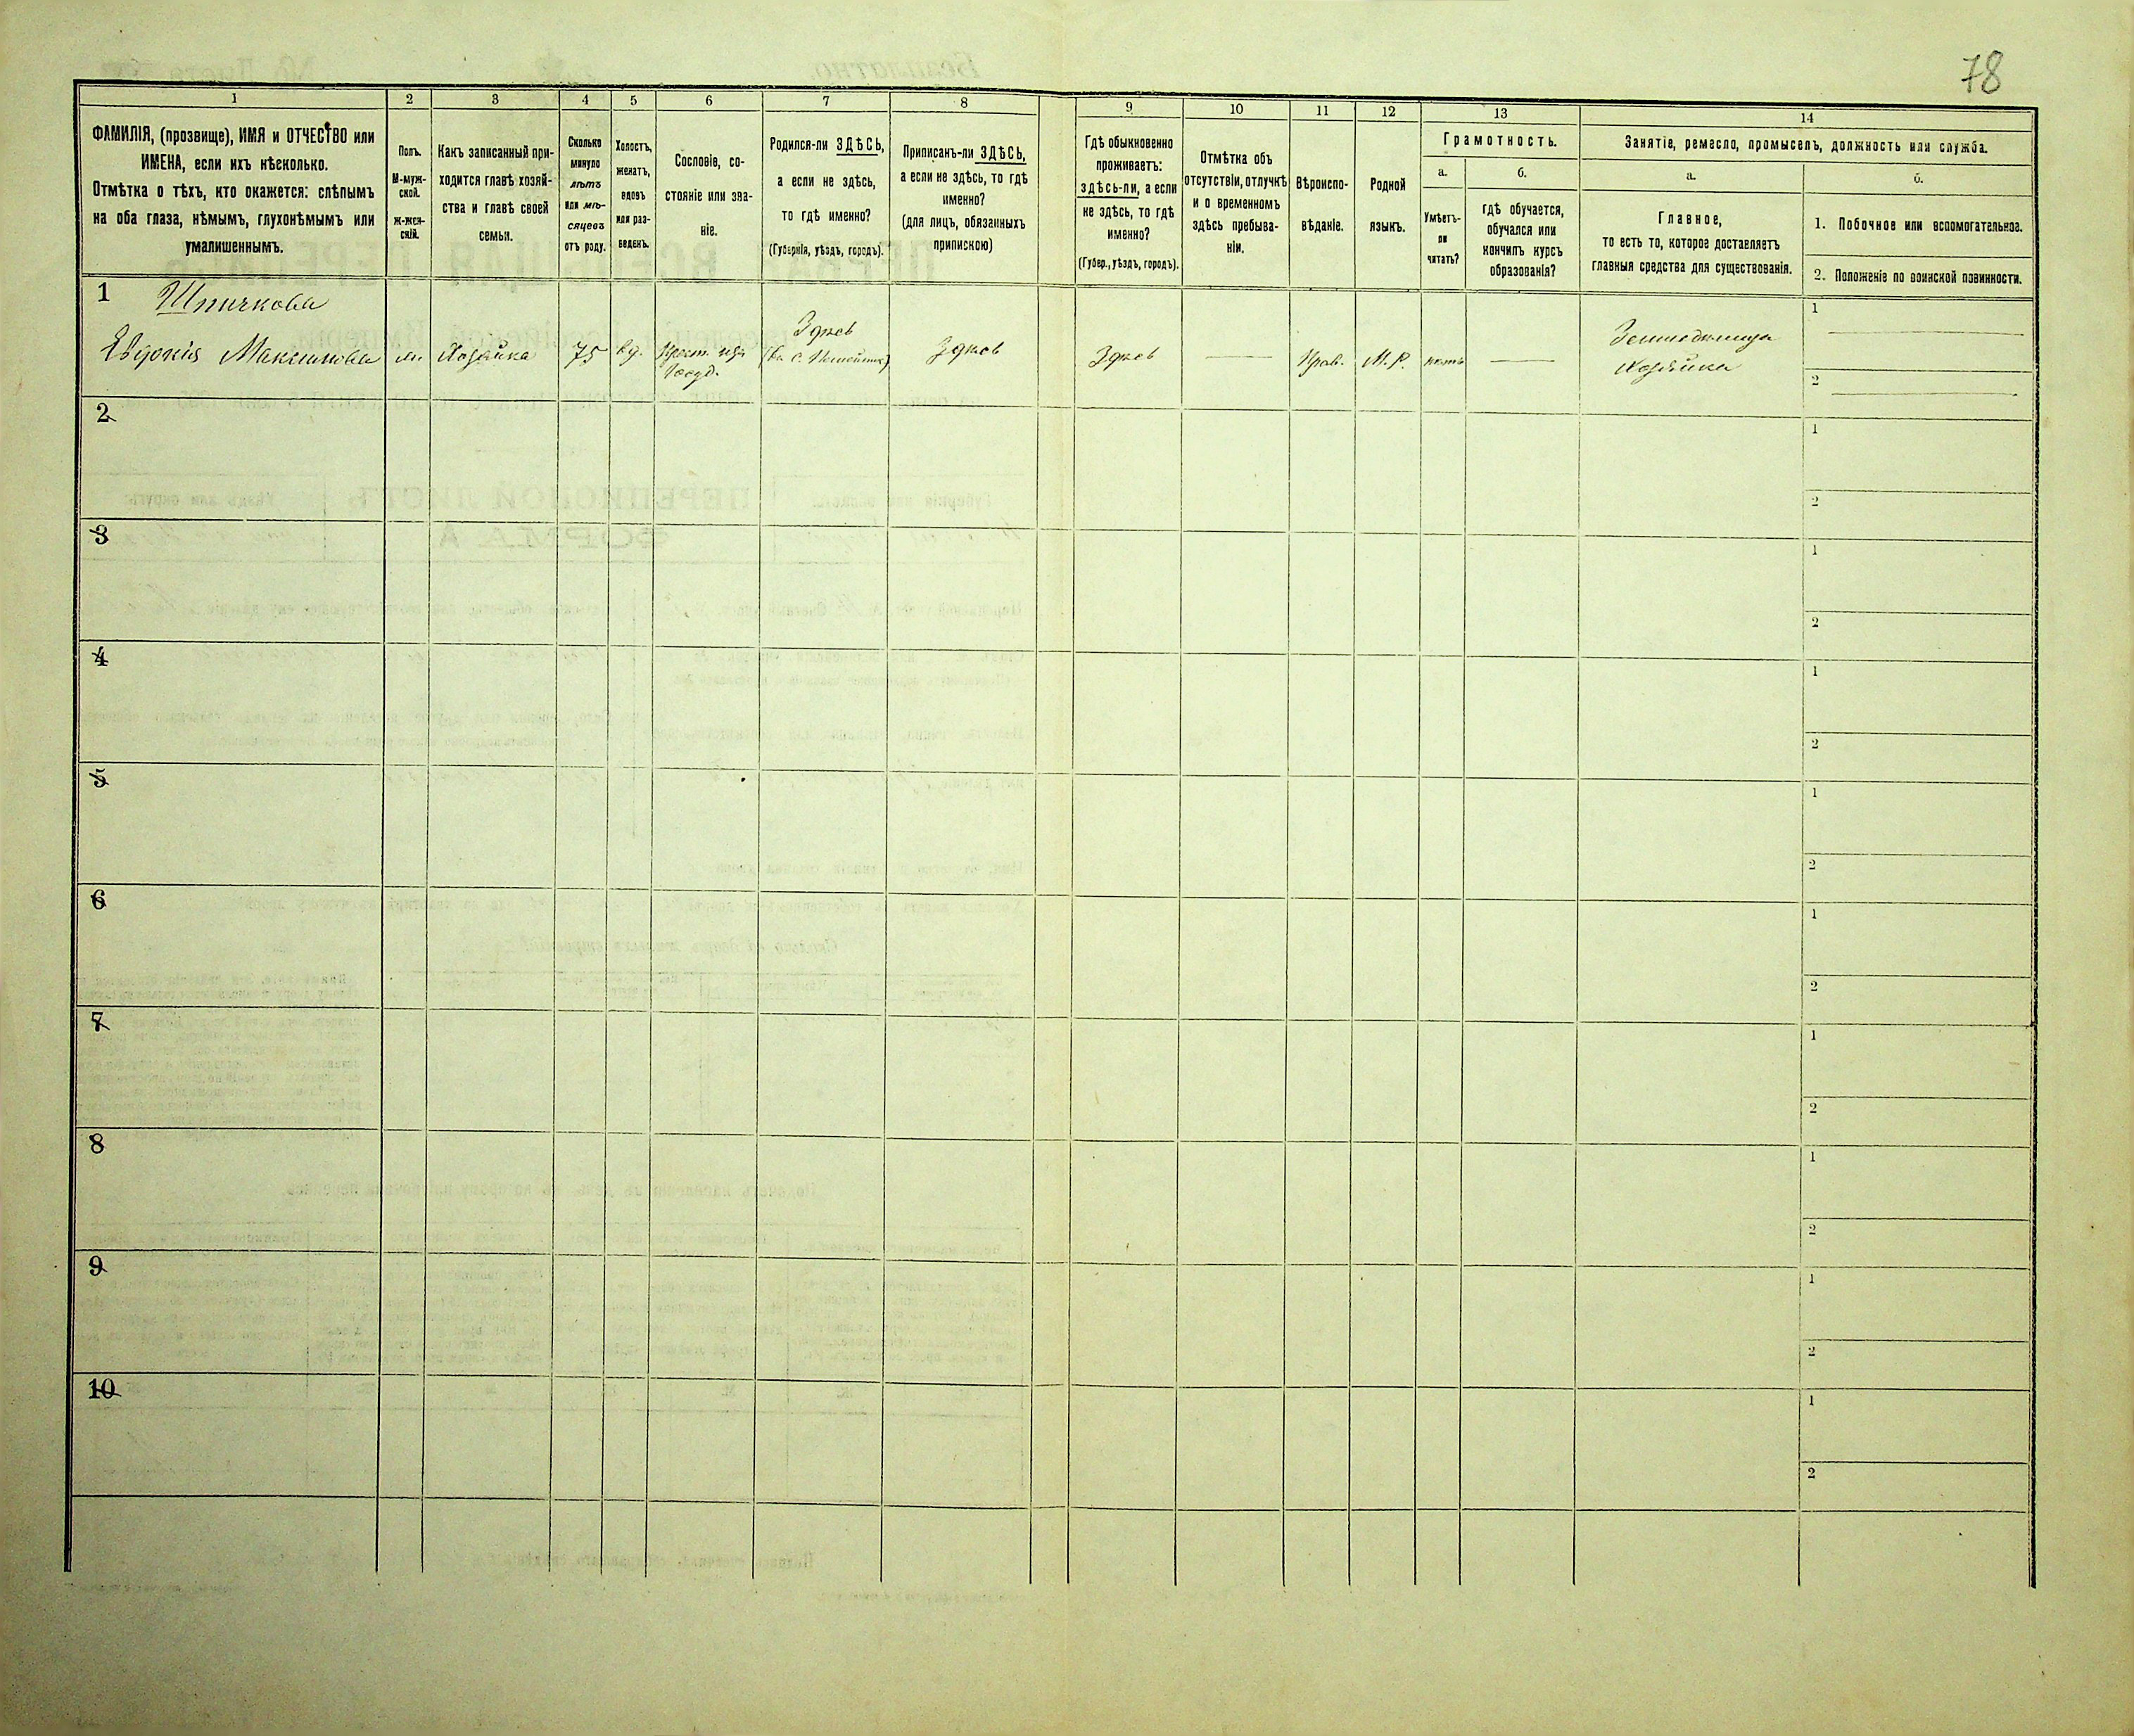 78
1 2 3 4 5 6 7 8 9 10 11 12 13 14
ФАМИЛІЯ, (прозвище), ИМЯ и ОТЧЕСТВО или
ИМЕНА, если ихъ нѣсколько.
Отмѣтка о тѣхъ, кто окажется: слѣпымъ
на оба глаза, нѣмымъ, глухонѣмымъ или
умалишеннымъ.
Полъ.
М-муж-
ской.
Ж-жен-
скій.
Какъ записанный при-
ходится главѣ хозяй-
ства и главѣ своей
семьи.
Сколько
минуло
лѣтъ
или мѣ-
сяцевъ
отъ роду.
Холостъ,
женатъ,
вдовъ
или раз-
веденъ.
Сословіе, со-
стояніе или зва-
ніе.
Родился-ли ЗДѢСЬ,
а если не здѣсь,
то гдѣ именно?
(Губернія, уѣздъ, городъ).
Приписанъ-ли ЗДѢСЬ,
а если не здѣсь, то гдѣ
именно?
(для лицъ, обязанныхъ
припискою)
Гдѣ обыкновенно
проживаетъ:
здѣсь-ли, а если
не здѣсь, то гдѣ
именно?
(Губер., уѣздъ, городъ).
Отмѣтка объ
отсутствіи, отлучкѣ
и о временномъ
здѣсь пребыва-
ніи.
Вѣроиспо-
вѣданіе.
Родной
языкъ.
Грамотность.
а.
Умѣетъ-
ли
читать?
б.
гдѣ обучается,
обучался или
кончилъ курсъ
образованія?
Занятіе, ремесло, промыселъ, должность или служба.
а.
Главное,
то есть то, которое доставляетъ
главныя средства для существованія.
б.
1. Побочное или вспомогательное.
2. Положеніе по воинской повинности.
1 Шпичкова
Евдокія Максимова
Хозяйка
75
вд.
Крест. изъ
Госуд.
Здѣсь
Здѣсь
Здѣсь
Прав.
М.Р.
нѣтъ
Земледѣлица
Хозяйка
1
2
2
1
2
3
1
2
4
1
2
5
1
2
6
1
2
7
1
2
8
1
2
9
1
2
10
1
2